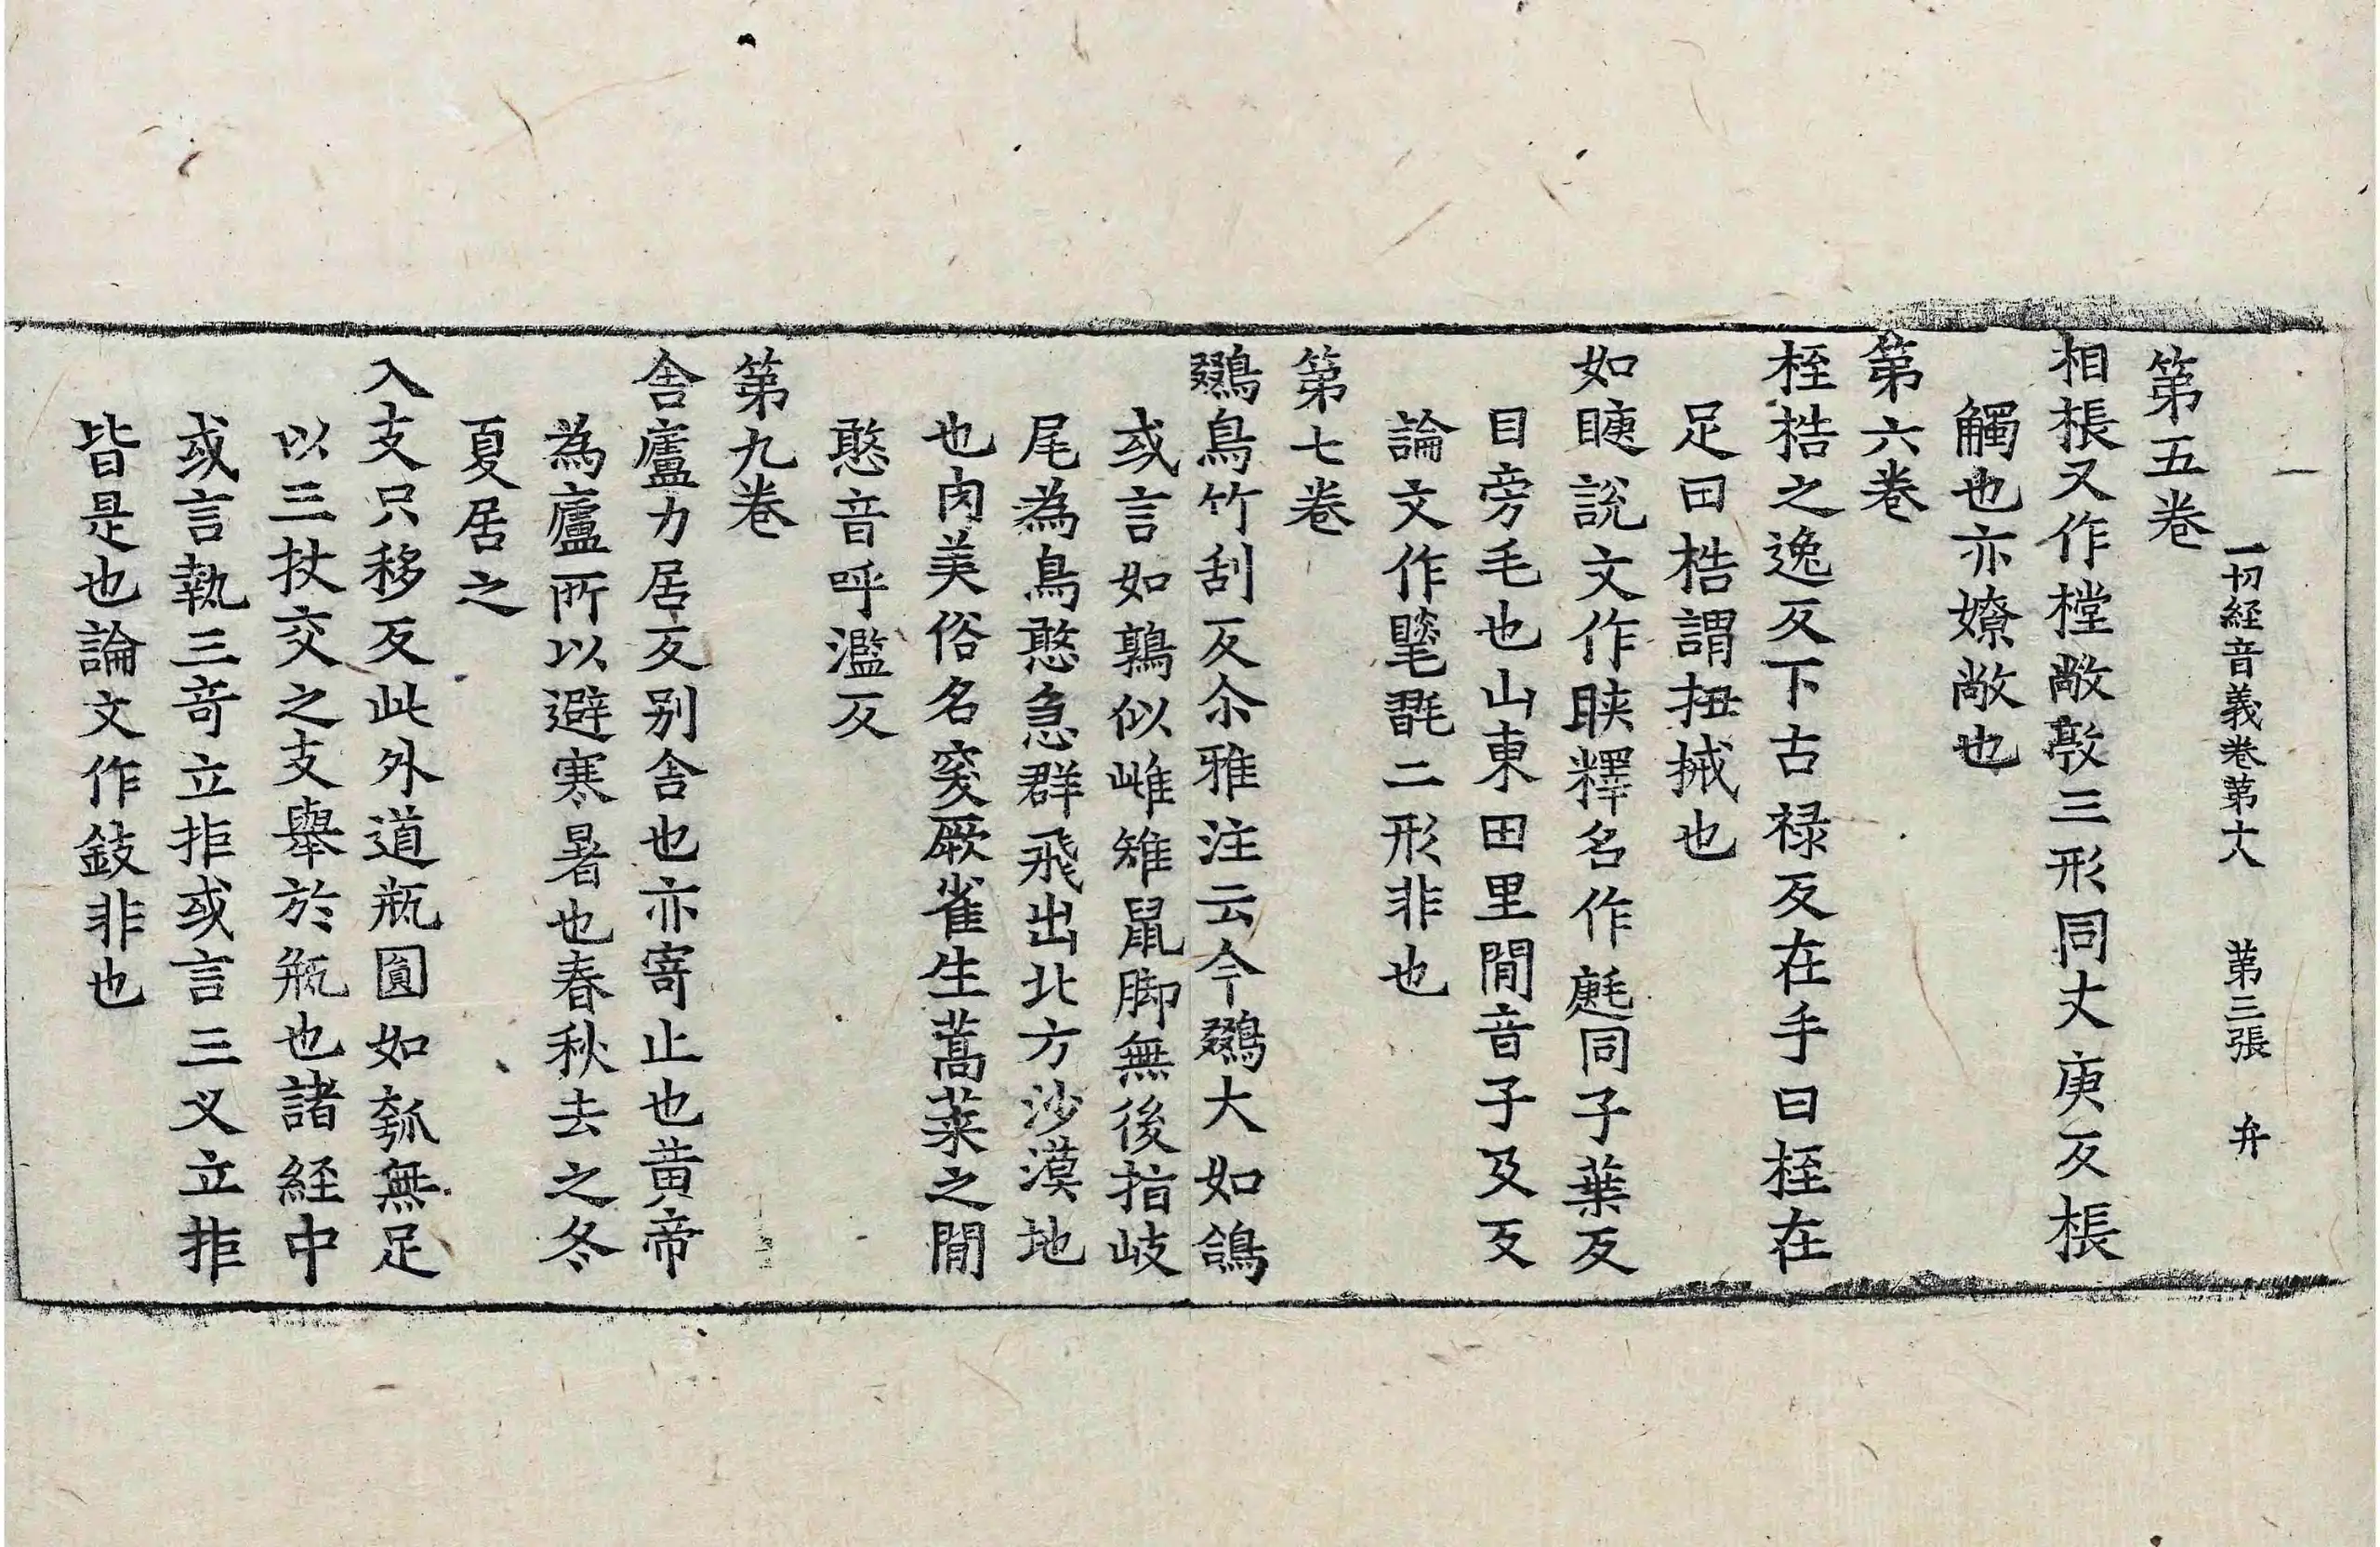 一切経音義卷第十八 第三張 弁
第五卷
相棖又作樘敞敹三形同丈庚反棖
觸也亦嫽敞也
第六卷
桎梏之逸反下古禄反在手曰桎在
足曰梏謂扭械也
如睫說文作䀹釋名作㲪同子葉反
目旁毛也山東田里閒音子及反
論文作𣯫毾二形非也
第七卷
鵽鳥竹刮反尒雅注云今鵽大如鴿
或言如鶉似雌雉鼠脚無後指岐
尾為鳥憨急群飛出北方沙漠地
也肉美俗名突厥雀生蒿萊之閒
憨音呼濫反
第九卷
舍廬力居反别舍也亦寄止也黃帝
為廬所以避寒暑也春秋去之冬
夏居之
入支只移反此外道瓶圓如瓠無足
以三扙交之支舉於瓶也諸経中
或言執三奇立拒或言三叉立拒
皆是也論文作鈘非也